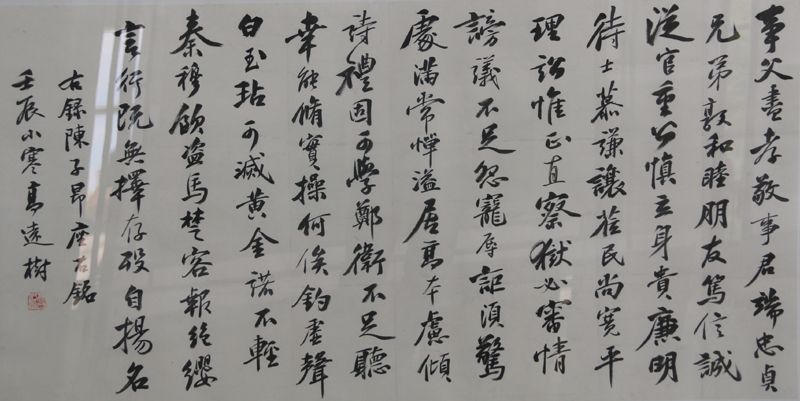 事父盡孝敬事君端忠貞
兄弟敦和睦朋友篤信誠
從官重公慎立身貴廉明
待士慕謙讓莅民尚寬平
理訟惟正直察獄必審情
謗議不足怨寵辱詎須驚
處滿常憚溢居高本慮傾
詩禮固可學鄭衛不足聽
幸能脩實操何俟釣虛聲
白玉玷可滅黃金諾不輕
秦穆飲盜馬楚客報絕纓
言行既無擇存歿自揚名
右録陳子昂座右銘
壬辰小寒高遠樹